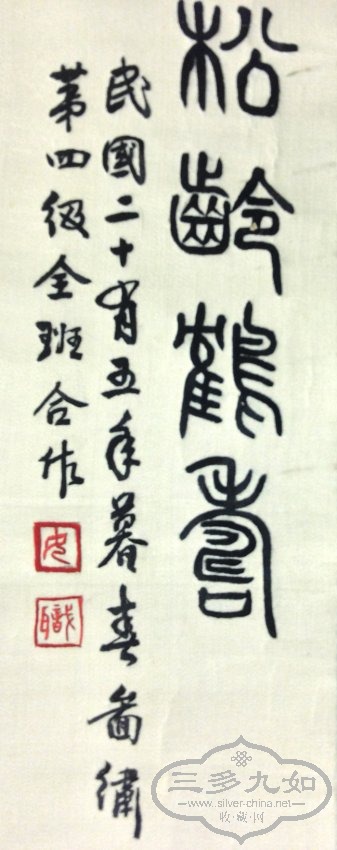 松齡鶴壽
民國二十有五年暮春圖繡
第四級全班合作
女
職
三多九如
www.silver-china.net
收·藏·网